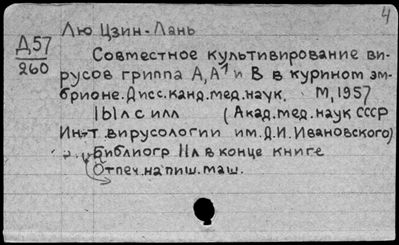 4
Лю Цзин-Лань
Д57
260
Совместное культивирование ви-
русов гриппа А, А¹ и В в курином эм-
брионе. Дисс. канд. мед. наук. М, 1957
151 л с илл (Акад. мед. наук СССР
Ин-т вирусологии им. Д.И. Ивановского)
Библиогр 11 л в конце книге
Отпеч. на пиш. маш.